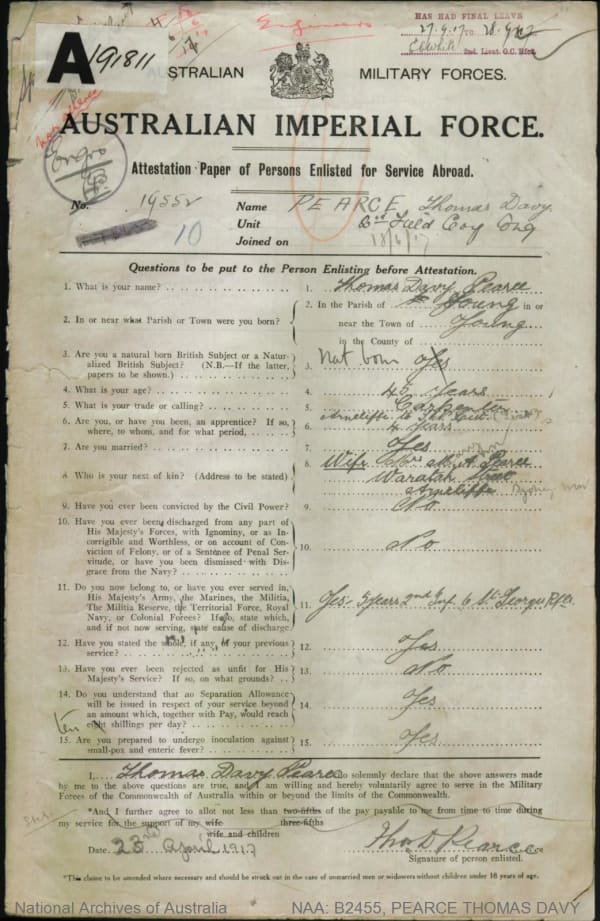 HAS HAD FINAL LEAVE
27.4.17 TO 28.4.17
2nd. Lieut. O.C. Rfts.
Engineers
A 191811
AUSTRALIAN MILITARY FORCES.
AUSTRALIAN IMPERIAL FORCE.
Attestation Paper of Persons Enlisted for Service Abroad.
No. 19552 Name PEARCE Thomas Davy
Unit Field Coy Eng
10 Joined on 18/6/17
Questions to be put to the Person Enlisting before Attestation.
1. What is your name? 1. Thomas Davy Pearce
2. In or near what Parish or Town were you born? 2. In the Parish of Young in or
near the Town of Young
in the County of
3. Are you a natural born British Subject or a Natur-
alized British Subject? (N.B.—If the latter, 3. Nat born Yes
papers to be shown.)
4. What is your age? 4. 43 Years
5. What is your trade or calling? 5. Carpenter
6. Are you, or have you been, an apprentice? If so, Arncliffe
where, to whom, and for what period, 6. 4 Years
7. Are you married? 7. Yes
8. Who is your next of kin? (Address to be stated) 8. Wife Pearce
Waratah Street
Arncliffe Sydney NSW
9. Have you ever been convicted by the Civil Power? 9. No
10. Have you ever been discharged from any part of
His Majesty's Forces, with Ignominy, or as In-
corrigible and Worthless, or on account of Con-
viction of Felony, or of a Sentence of Penal Ser- 10. No
vitude, or have you been dismissed with Dis-
grace from the Navy?
11. Do you now belong to, or have you ever served in,
His Majesty's Army, the Marines, the Militia,
The Militia Reserve, the Territorial Force, Royal 11. Yes 3 years 2nd Inf 6 St Georges Rfls
Navy, or Colonial Forces? If so, state which,
and if not now serving, state cause of discharge
12. Have you stated the whole, if any, of your previous
service? 12. Yes
13. Have you ever been rejected as unfit for His
Majesty's Service? If so, on what grounds? 13. No
14. Do you understand that no Separation Allowance
will be issued in respect of your service beyond
an amount which, together with Pay, would reach 14. Yes
ten eight shillings per day?
15. Are you prepared to undergo inoculation against
small-pox and enteric fever? 15. Yes
I, Thomas Davy Pearce do solemnly declare that the above answers made
by me to the above questions are true, and I am willing and hereby voluntarily agree to serve in the Military
Forces of the Commonwealth of Australia within or beyond the limits of the Commonwealth.
*And I further agree to allot not less than two-fifths of the pay payable to me from time to time during
my service for the support of my wife three-fifths
wife and children
Date 23rd April 1917 Tho D Pearce
Signature of person enlisted.
*This clause to be amended where necessary and should be struck out in the case of unmarried men or widowers without children under 18 years of age.
National Archives of Australia NAA: B2455, PEARCE THOMAS DAVY